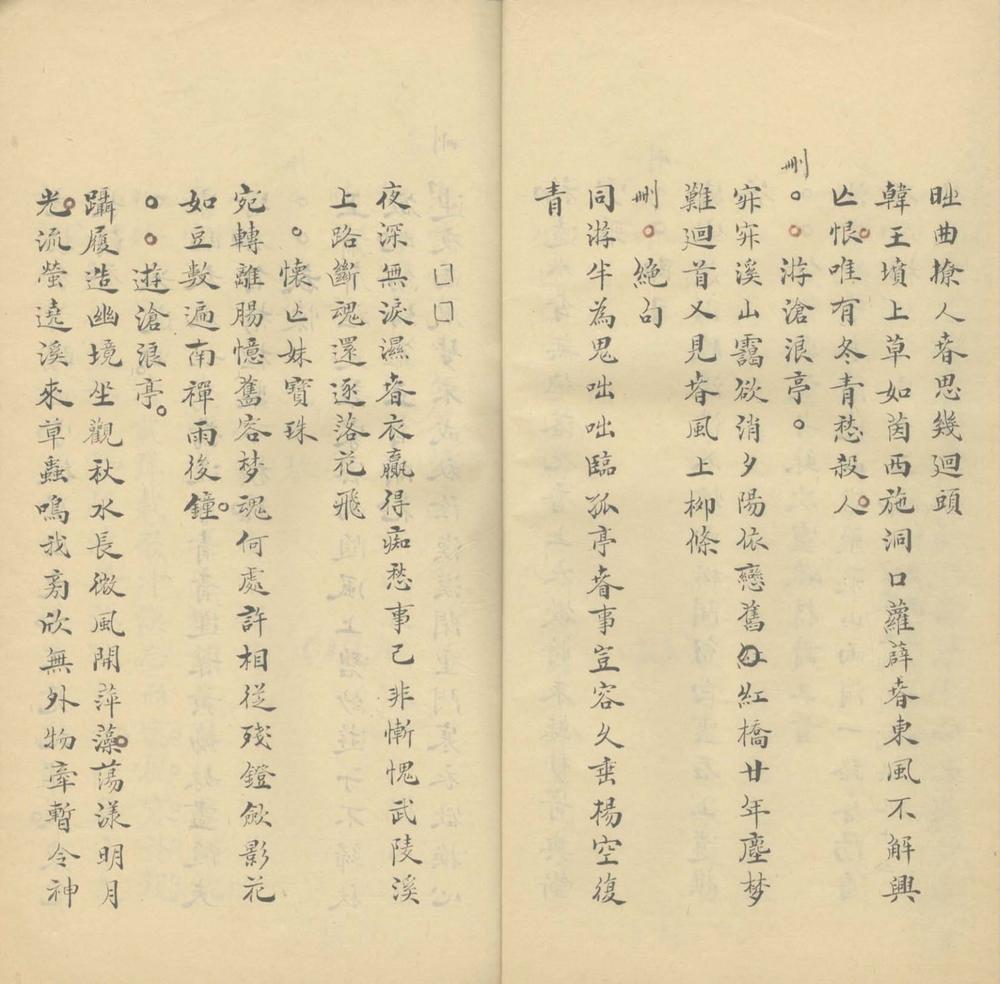 昢曲撩人春思幾廻頭
韓王墳上草如茵西施洞口蘿薜春東風不解興
亾恨唯有冬青愁殺人
刪
游滄浪亭
穼穼溪山靄欲消夕陽依戀舊紅紅橋廿年塵梦
難廻首又見春風上柳條
刪
絕句
同游半為鬼咄咄臨孤亭春事豈容久垂楊空復
青
□□
夜深無淚濕春衣贏得痴愁事已非慚愧武陵溪
上路斷魂還逐落花飛
懷亾妹寶珠
宛轉離腸憶舊容梦魂何處許相從殘鐙斂影花
如豆數遍南禪雨後鐘
遊滄浪亭
躡履造幽境坐觀秋水長微風開萍藻蕩漾明月
光流螢遶溪來草蟲鳴我旁欣無外物牽暫令神